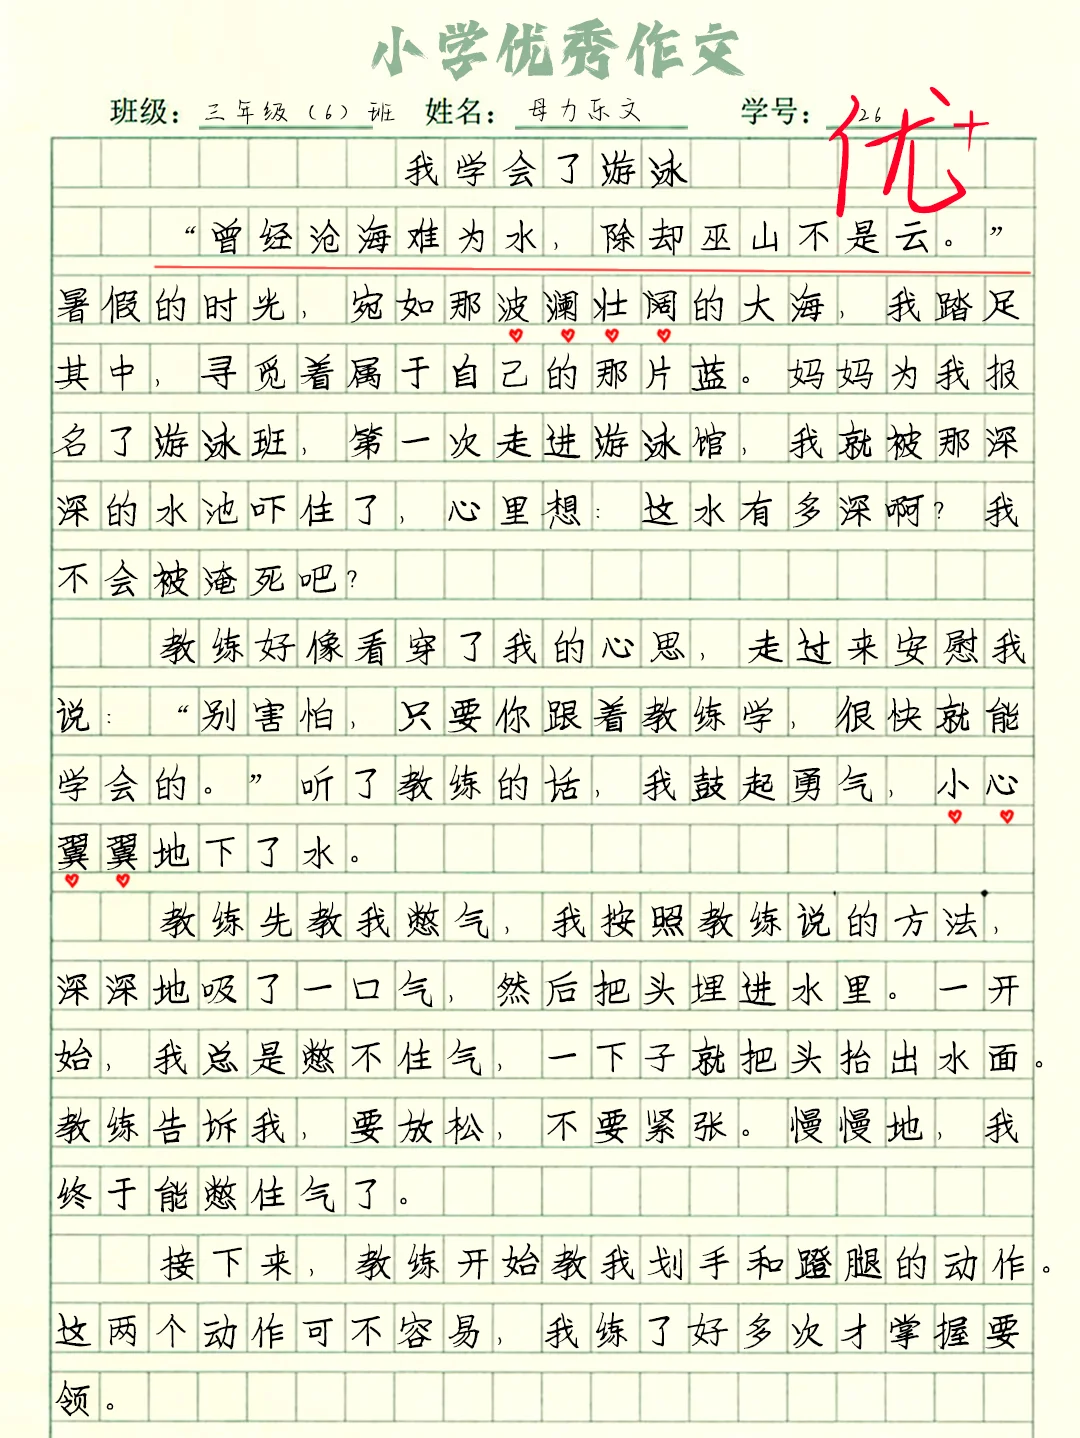 小学优秀作文
班级：三年级（6）班 姓名：母力乐文 学号：26
优+
我学会了游泳
“曾经沧海难为水，除却巫山不是云。”
暑假的时光，宛如那波澜壮阔的大海，我踏足
其中，寻觅着属于自己的那片蓝。妈妈为我报
名了游泳班，第一次走进游泳馆，我就被那深
深的水池吓住了，心里想：这水有多深啊？我
不会被淹死吧？
教练好像看穿了我的心思，走过来安慰我
说：“别害怕，只要你跟着教练学，很快就能
学会的。”听了教练的话，我鼓起勇气，小心
翼翼地下了水。
教练先教我憋气，我按照教练说的方法，
深深地吸了一口气，然后把头埋进水里。一开
始，我总是憋不住气，一下子就把头抬出水面。
教练告诉我，要放松，不要紧张。慢慢地，我
终于能憋住气了。
接下来，教练开始教我划手和蹬腿的动作。
这两个动作可不容易，我练了好多次才掌握要
领。